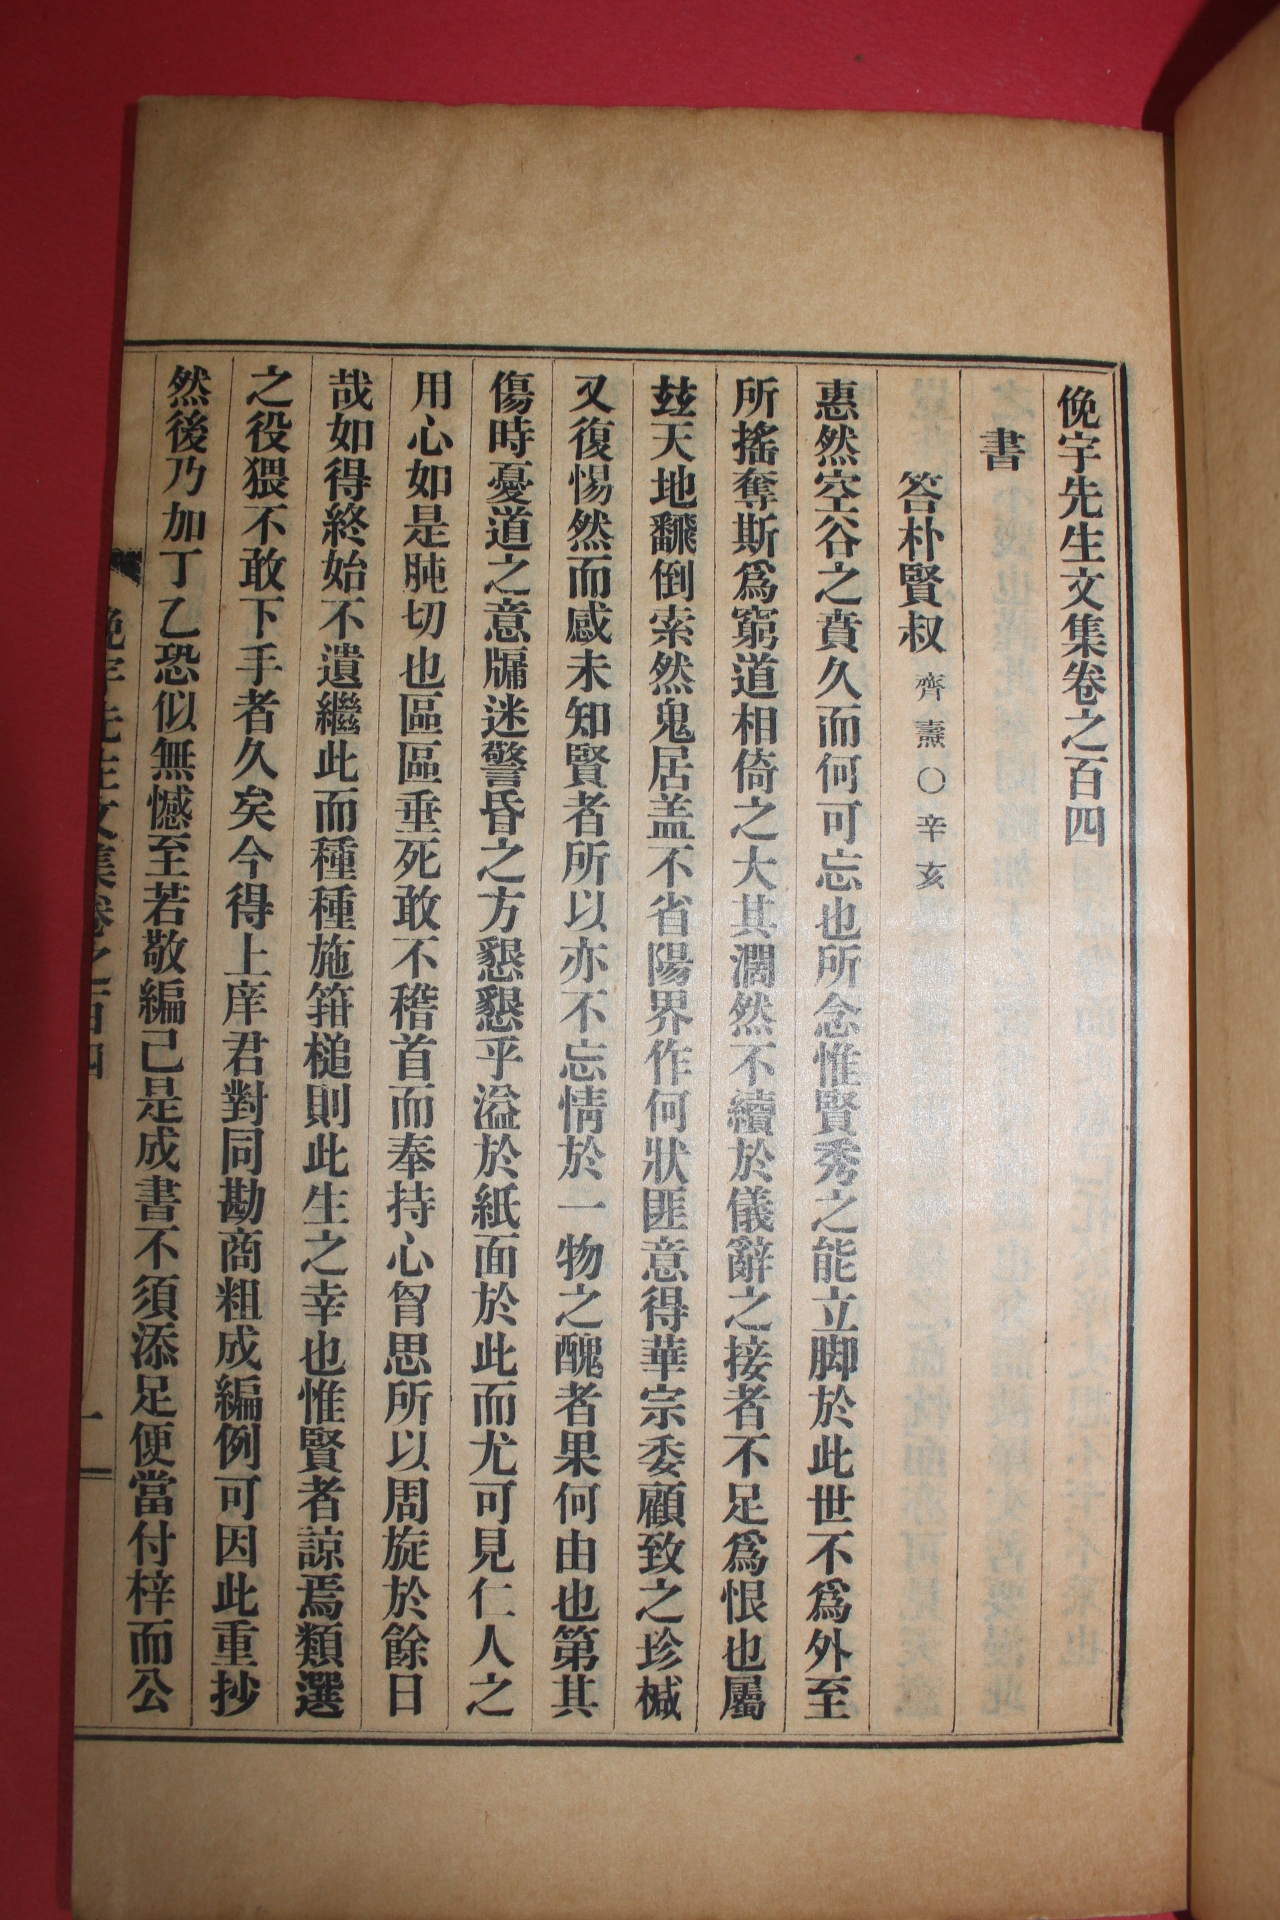 俛宇先生文集卷之百四
書
答朴賢叔 齊燾○辛亥
惠然空谷之賁久而何可忘也所念惟賢秀之能立脚於此世不爲外至
所搖奪斯爲窮道相倚之大其濶然不續於儀辭之接者不足爲恨也屬
玆天地飜倒索然鬼居盖不省陽界作何狀匪意得華宗委顧致之珍椷
又復惕然而感未知賢者所以亦不忘情於一物之醜者果何由也第其
傷時憂道之意牖迷警昏之方懇懇乎溢於紙面於此而尤可見仁人之
用心如是肫切也區區垂死敢不稽首而奉持心胷思所以周旋於餘日
哉如得終始不遺繼此而種種施箝槌則此生之幸也惟賢者諒焉類選
之役猥不敢下手者久矣今得上庠君對同勘商粗成編例可因此重抄
然後乃加丁乙恐似無憾至若敬編已是成書不須添足便當付梓而公
俛宇先生文集卷之百四
一